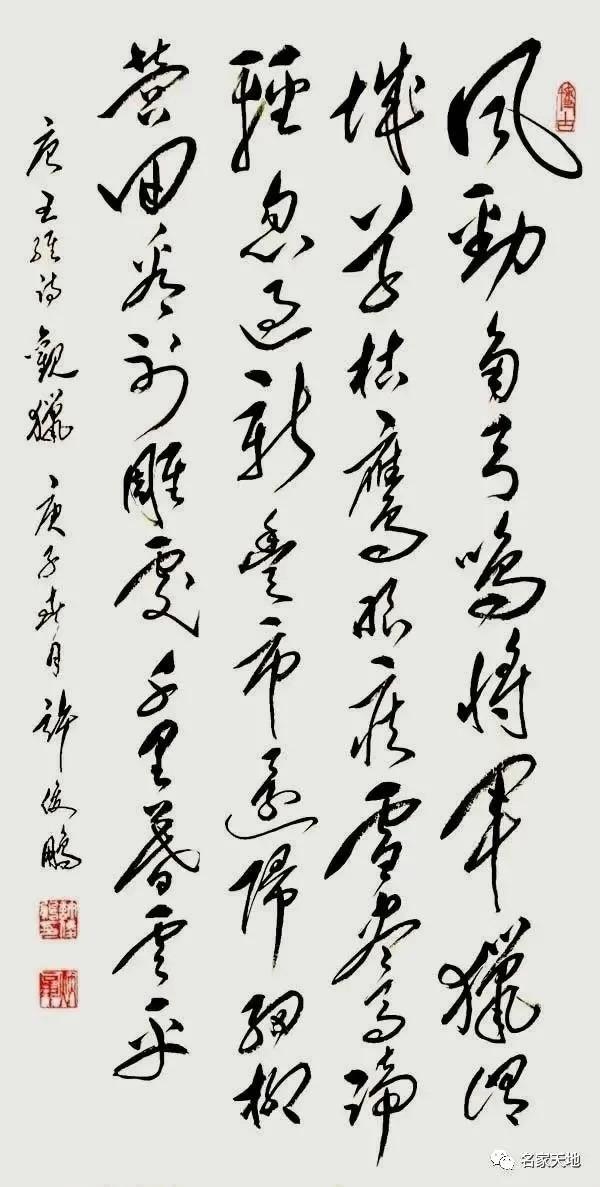 風勁角弓鳴將軍獵渭
城草枯鷹眼疾雪盡馬蹄
輕忽過新豐市還歸細柳
營回看射雕處千里暮雲平
唐王維诗觀獵 庚子春月許俊鵬
名家天地